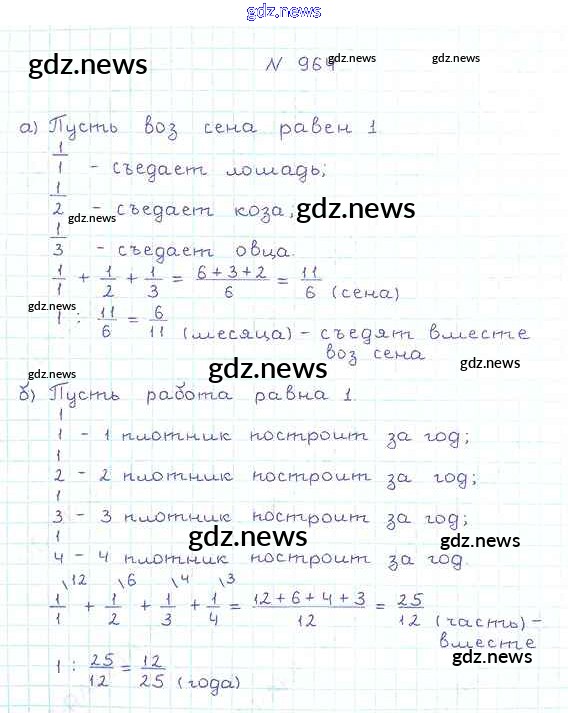 gdz.news
gdz.news N 964 gdz.news gdz.news
а) Пусть воз сена равен 1
1/1 - съедает лошадь;
1/2 - съедает коза; gdz.news
gdz.news
1/3 - съедает овца.
1/1 + 1/2 + 1/3 = (6+3+2)/6 = 11/6 (сена)
gdz.news
1 : 11/6 = 6/11 (месяца) - съедят вместе
воз сена
gdz.news gdz.news gdz.news
б) Пусть работа равна 1.
1/1 - 1 плотник построит за год;
1/2 - 2 плотник построит за год;
1/3 - 3 плотник построит за год;
gdz.news gdz.news
1/4 - 4 плотник построит за год.
\12 \6 \4 \3
1/1 + 1/2 + 1/3 + 1/4 = (12+6+4+3)/12 = 25/12 (часть) -
вместе
gdz.news
1 : 25/12 = 12/25 (года)